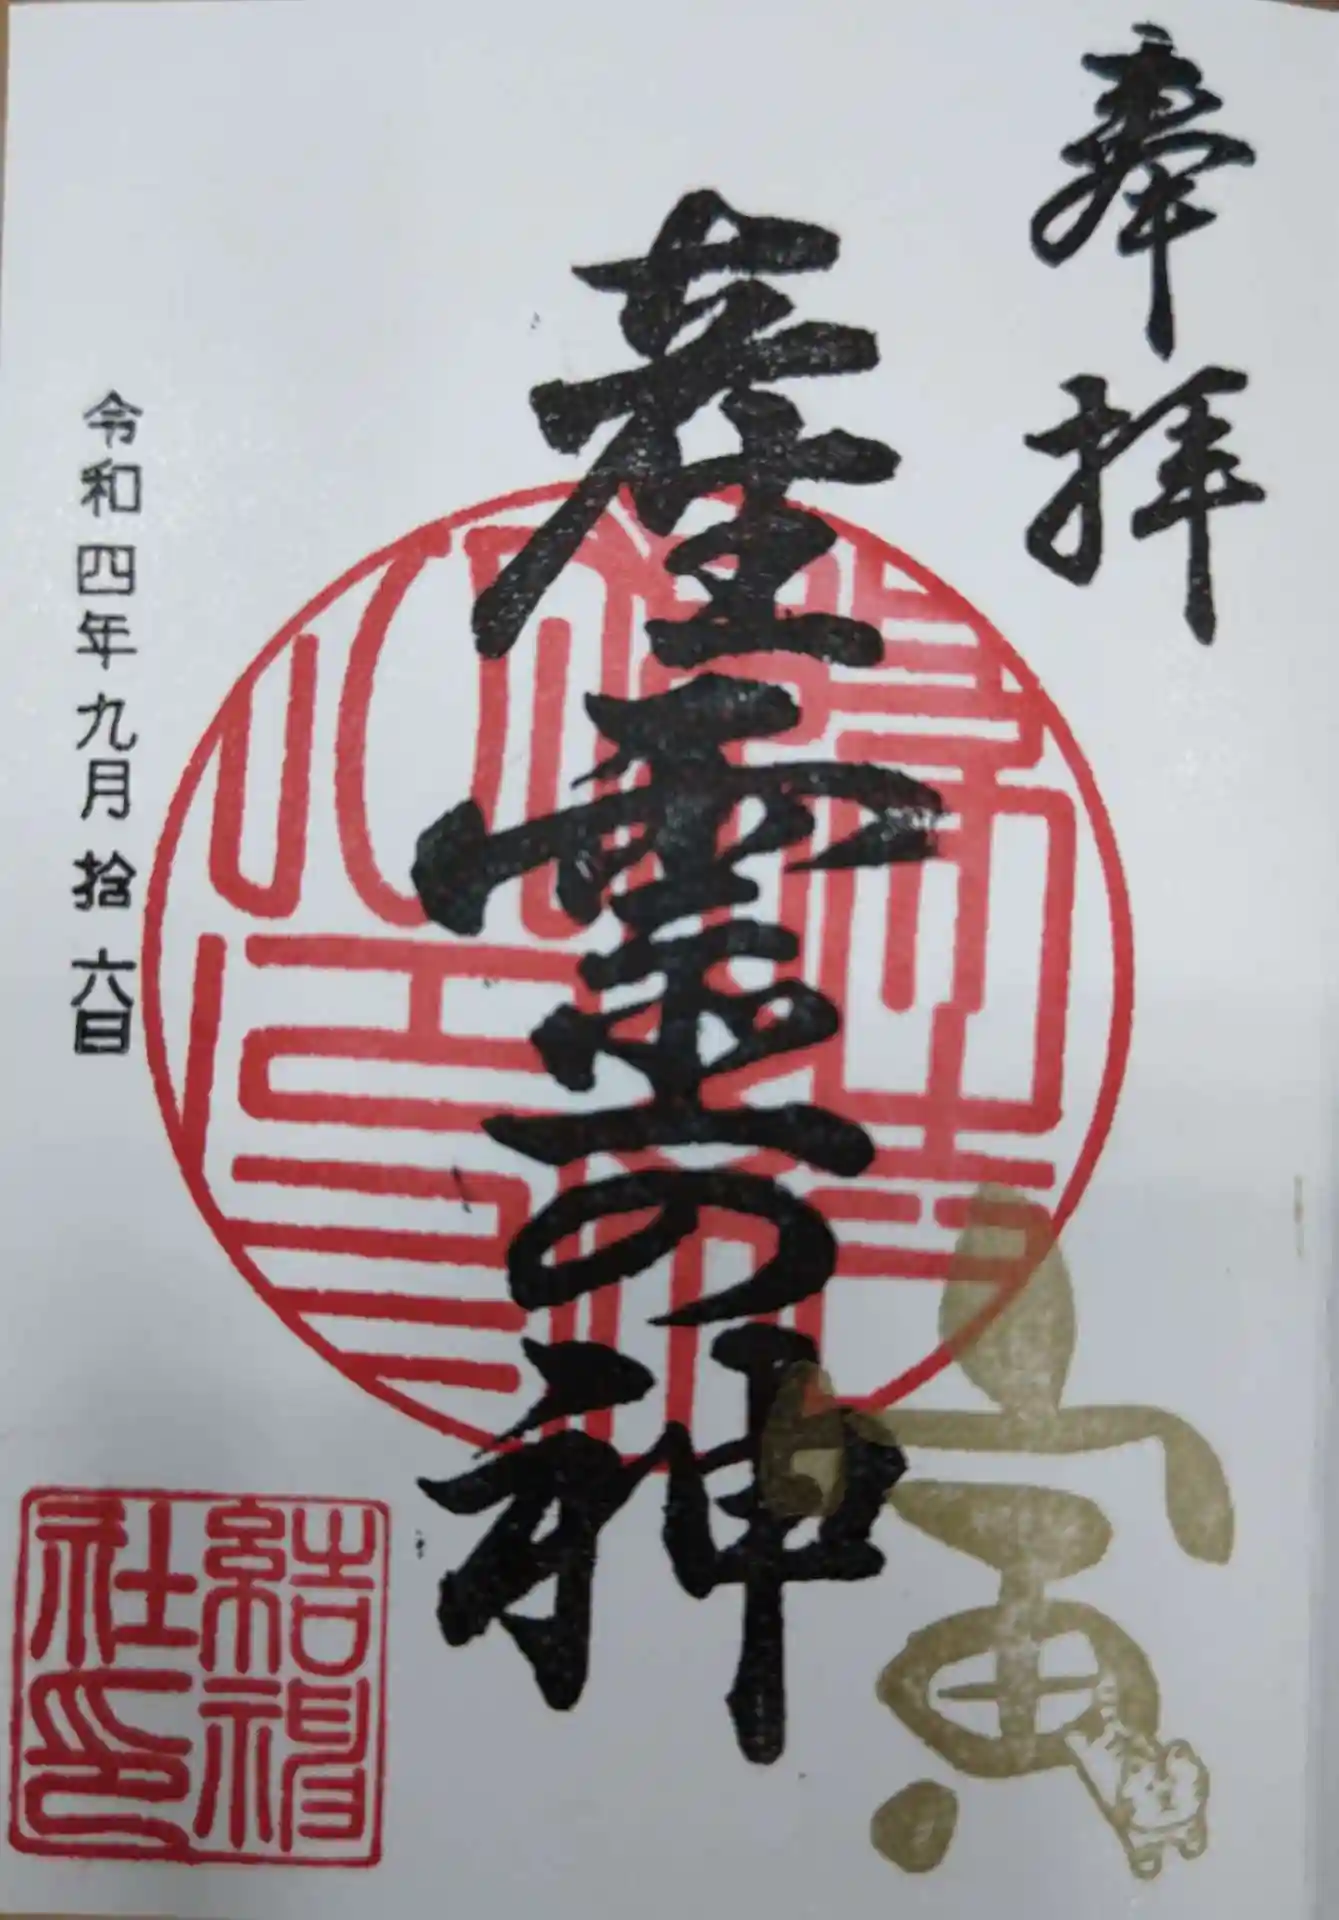 奉拝
産霊の神
寅
令和四年九月拾六日
結神
社印